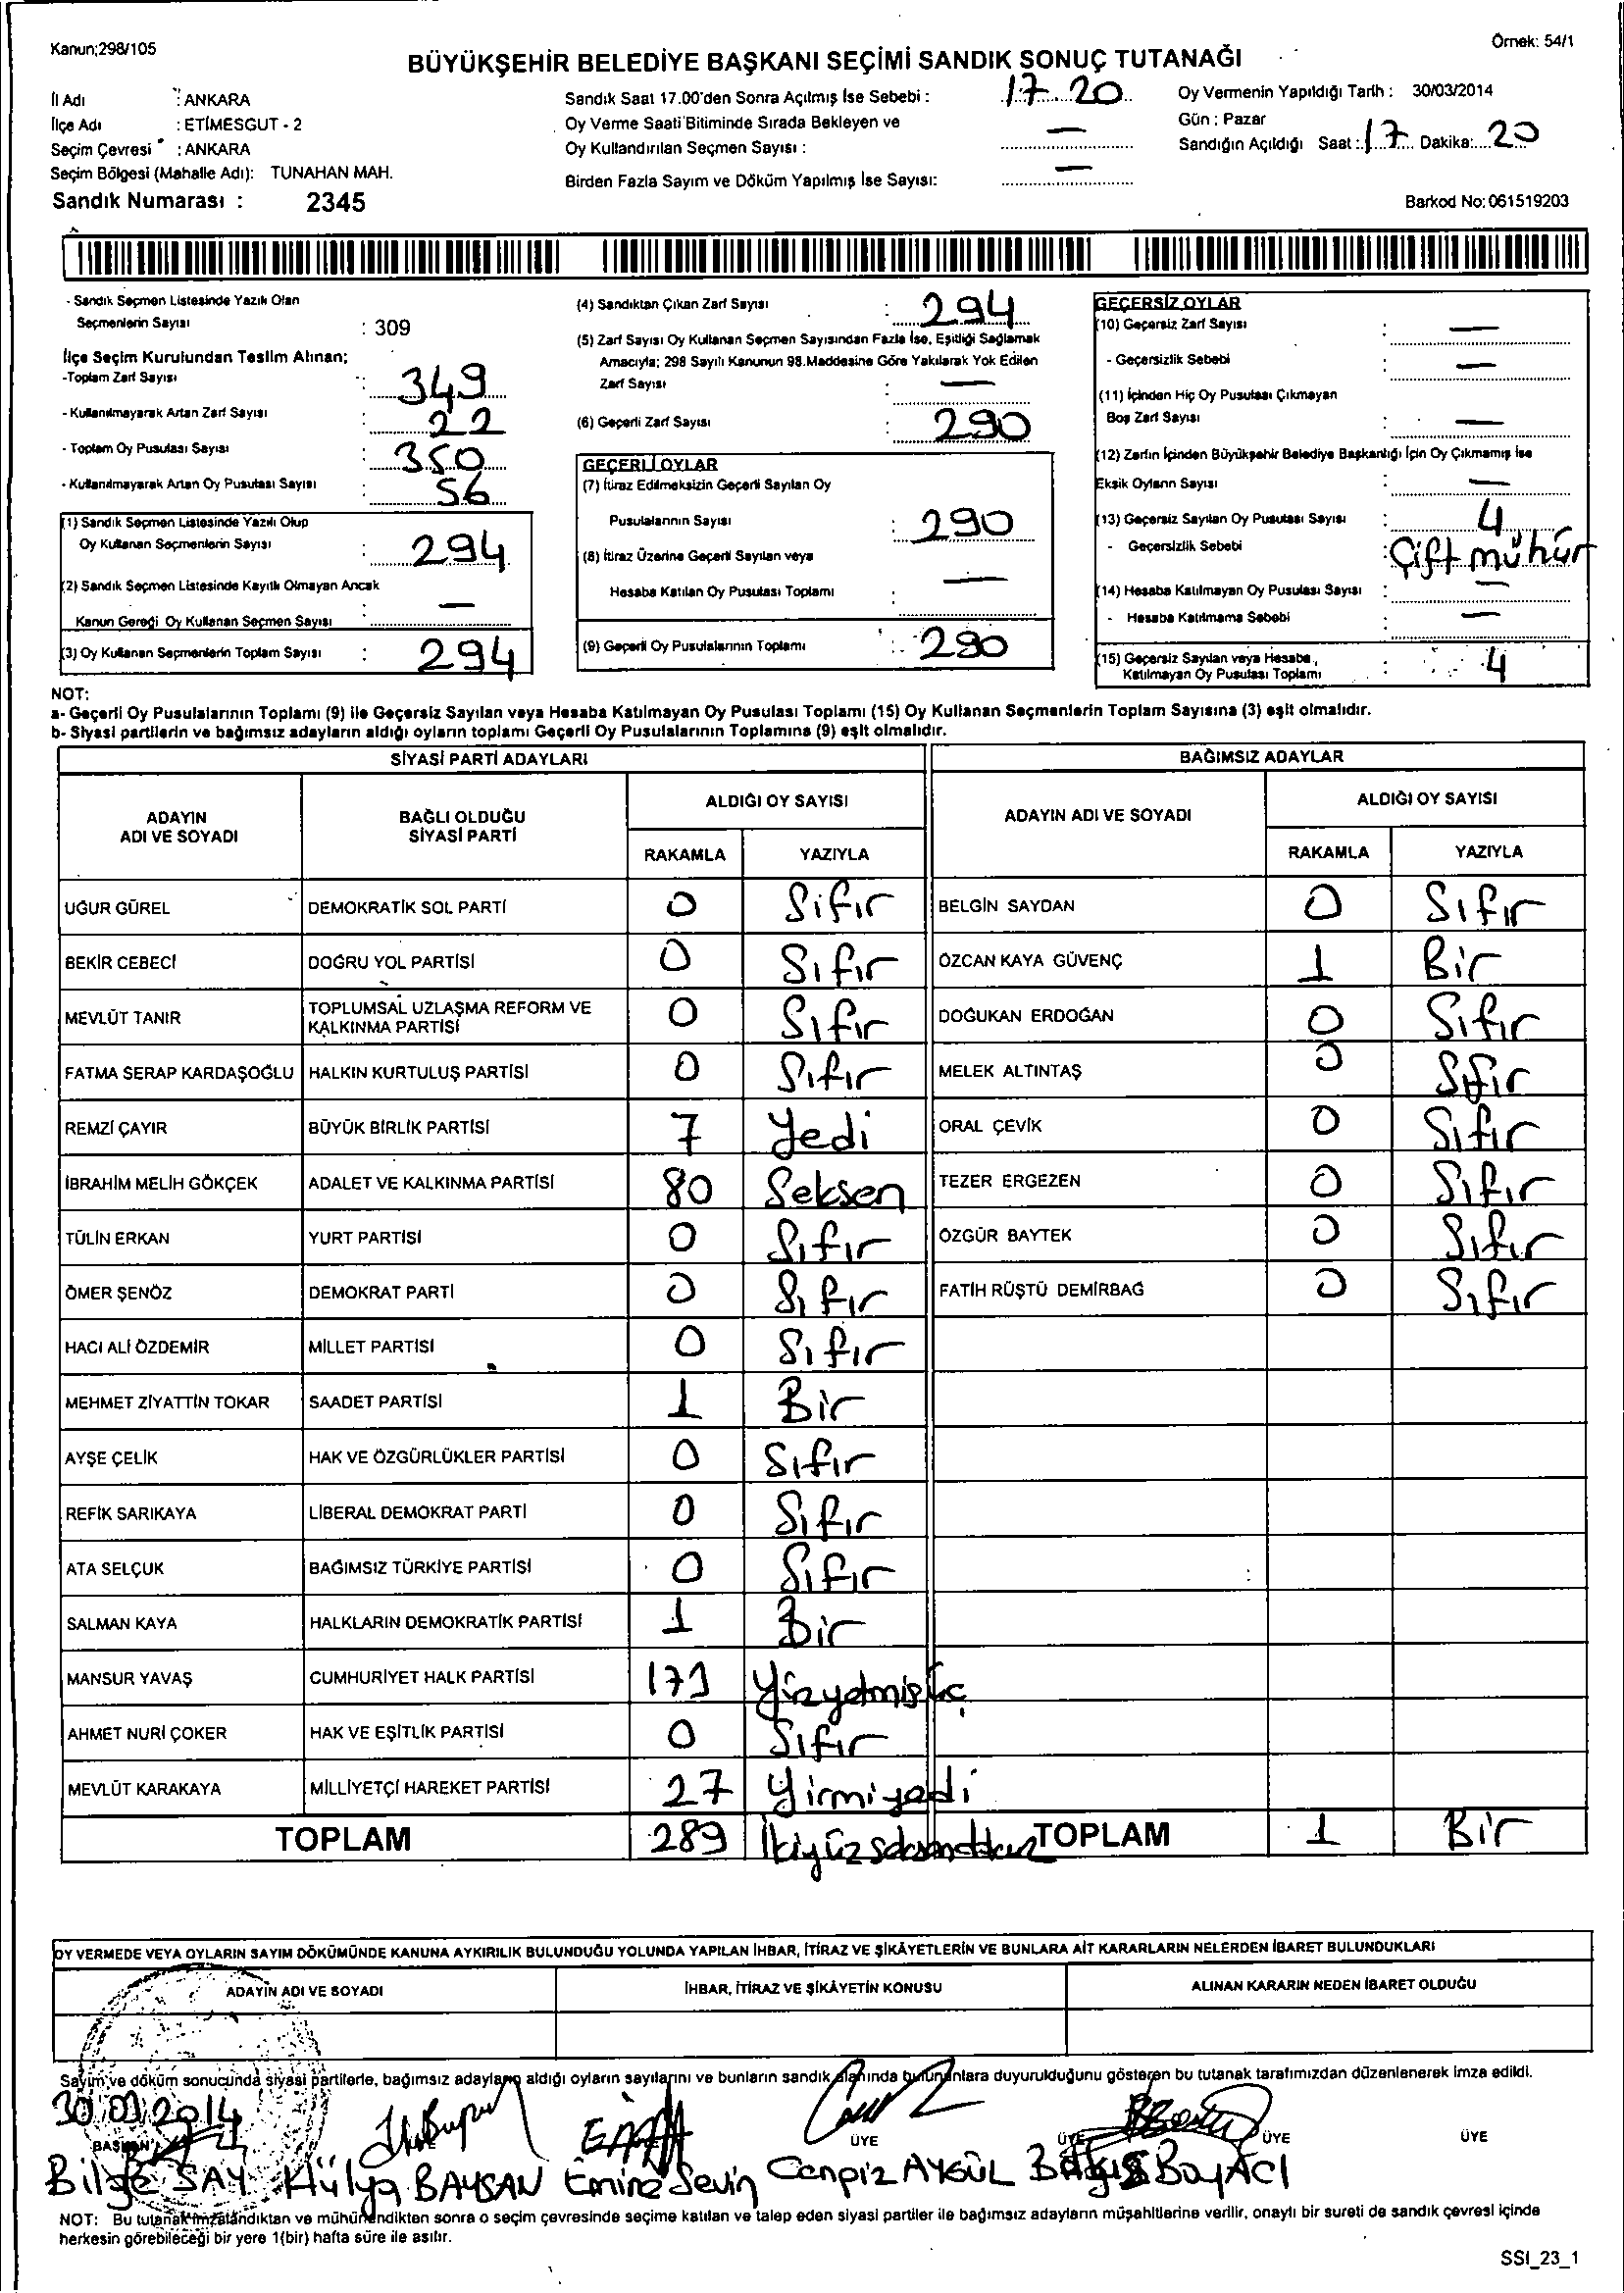 Kanun;298/105
Örnek: 54/1
BÜYÜKŞEHİR BELEDİYE BAŞKANI SEÇİMİ SANDIK SONUÇ TUTANAĞI
İl Adı : ANKARA
İlçe Adı : ETİMESGUT - 2
Seçim Çevresi : ANKARA
Seçim Bölgesi (Mahalle Adı): TUNAHAN MAH.
Sandık Numarası : 2345
Sandık Saat 17.00'den Sonra Açılmış İse Sebebi : 17 20
Oy Verme Saati Bitiminde Sırada Bekleyen ve
Oy Kullandırılan Seçmen Sayısı : —
Birden Fazla Sayım ve Döküm Yapılmış İse Sayısı: —
Oy Vermenin Yapıldığı Tarih : 30/03/2014
Gün : Pazar
Sandığın Açıldığı Saat : 17 Dakika: 20
Barkod No: 061519203
- Sandık Seçmen Listesinde Yazılı Olan
Seçmenlerin Sayısı : 309
İlçe Seçim Kurulundan Teslim Alınan;
-Toplam Zarf Sayısı : 349
- Kullanılmayarak Artan Zarf Sayısı : 22
- Toplam Oy Pusulası Sayısı : 350
- Kullanılmayarak Artan Oy Pusulası Sayısı : 56
(1) Sandık Seçmen Listesinde Yazılı Olup
Oy Kullanan Seçmenlerin Sayısı : 294
(2) Sandık Seçmen Listesinde Kayıtlı Olmayan Ancak
Kanun Gereği Oy Kullanan Seçmen Sayısı : —
(3) Oy Kullanan Seçmenlerin Toplam Sayısı : 294
(4) Sandıktan Çıkan Zarf Sayısı : 294
(5) Zarf Sayısı Oy Kullanan Seçmen Sayısından Fazla İse, Eşitliği Sağlamak
Amacıyla; 298 Sayılı Kanunun 98.Maddesine Göre Yakılarak Yok Edilen
Zarf Sayısı : —
(6) Geçerli Zarf Sayısı : 290
GEÇERLİ OYLAR
(7) İtiraz Edilmeksizin Geçerli Sayılan Oy
Pusulalarının Sayısı : 290
(8) İtiraz Üzerine Geçerli Sayılan veya
Hesaba Katılan Oy Pusulası Toplamı : —
(9) Geçerli Oy Pusulalarının Toplamı : 290
GEÇERSİZ OYLAR
(10) Geçersiz Zarf Sayısı : —
- Geçersizlik Sebebi : —
(11) İçinden Hiç Oy Pusulası Çıkmayan
Boş Zarf Sayısı : —
(12) Zarfın İçinden Büyükşehir Belediye Başkanlığı İçin Oy Çıkmamış İse
Eksik Oyların Sayısı : —
(13) Geçersiz Sayılan Oy Pusulası Sayısı : 4
- Geçersizlik Sebebi : Çift mühür
(14) Hesaba Katılmayan Oy Pusulası Sayısı : —
- Hesaba Katılmama Sebebi : —
(15) Geçersiz Sayılan veya Hesaba
Katılmayan Oy Pusulası Toplamı : 4
NOT:
a- Geçerli Oy Pusulalarının Toplamı (9) ile Geçersiz Sayılan veya Hesaba Katılmayan Oy Pusulası Toplamı (15) Oy Kullanan Seçmenlerin Toplam Sayısına (3) eşit olmalıdır.
b- Siyasi partilerin ve bağımsız adayların aldığı oyların toplamı Geçerli Oy Pusulalarının Toplamına (9) eşit olmalıdır.
SİYASİ PARTİ ADAYLARI
ADAYIN ADI VE SOYADI BAĞLI OLDUĞU SİYASİ PARTİ ALDIĞI OY SAYISI
RAKAMLA YAZIYLA
UĞUR GÜREL DEMOKRATİK SOL PARTİ 0 Sıfır
BEKİR CEBECİ DOĞRU YOL PARTİSİ 0 Sıfır
MEVLÜT TANIR TOPLUMSAL UZLAŞMA REFORM VE KALKINMA PARTİSİ 0 Sıfır
FATMA SERAP KARDAŞOĞLU HALKIN KURTULUŞ PARTİSİ 0 Sıfır
REMZİ ÇAYIR BÜYÜK BİRLİK PARTİSİ 7 Yedi
İBRAHİM MELİH GÖKÇEK ADALET VE KALKINMA PARTİSİ 80 Seksen
TÜLİN ERKAN YURT PARTİSİ 0 Sıfır
ÖMER ŞENÖZ DEMOKRAT PARTİ 0 Sıfır
HACI ALİ ÖZDEMİR MİLLET PARTİSİ 0 Sıfır
MEHMET ZİYATTİN TOKAR SAADET PARTİSİ 1 Bir
AYŞE ÇELİK HAK VE ÖZGÜRLÜKLER PARTİSİ 0 Sıfır
REFİK SARIKAYA LİBERAL DEMOKRAT PARTİ 0 Sıfır
ATA SELÇUK BAĞIMSIZ TÜRKİYE PARTİSİ 0 Sıfır
SALMAN KAYA HALKLARIN DEMOKRATİK PARTİSİ 1 Bir
MANSUR YAVAŞ CUMHURİYET HALK PARTİSİ 173 Yüzyetmişüç
AHMET NURİ ÇOKER HAK VE EŞİTLİK PARTİSİ 0 Sıfır
MEVLÜT KARAKAYA MİLLİYETÇİ HAREKET PARTİSİ 27 Yirmiyedi
TOPLAM 289 İkiyüzseksendokuz
BAĞIMSIZ ADAYLAR
ADAYIN ADI VE SOYADI ALDIĞI OY SAYISI
RAKAMLA YAZIYLA
BELGİN SAYDAN 0 Sıfır
ÖZCAN KAYA GÜVENÇ 1 Bir
DOĞUKAN ERDOĞAN 0 Sıfır
MELEK ALTINTAŞ 0 Sıfır
ORAL ÇEVİK 0 Sıfır
TEZER ERGEZEN 0 Sıfır
ÖZGÜR BAYTEK 0 Sıfır
FATİH RÜŞTÜ DEMİRBAĞ 0 Sıfır
TOPLAM 1 Bir
OY VERMEDE VEYA OYLARIN SAYIM DÖKÜMÜNDE KANUNA AYKIRILIK BULUNDUĞU YOLUNDA YAPILAN İHBAR, İTİRAZ VE ŞİKÂYETLERİN VE BUNLARA AİT KARARLARIN NELERDEN İBARET BULUNDUKLARI
ADAYIN ADI VE SOYADI İHBAR, İTİRAZ VE ŞİKÂYETİN KONUSU ALINAN KARARIN NEDEN İBARET OLDUĞU
Sayım ve döküm sonucunda siyasi partilerle, bağımsız adayların aldığı oyların sayılarını ve bunların sandık alanında bulunanlara duyurulduğunu gösteren bu tutanak tarafımızdan düzenlenerek imza edildi.
30.03.2014
BAŞKAN ÜYE ÜYE ÜYE ÜYE
Bilge SAY Hülya BAYSAN Emine Sevin Cengiz AYGÜL BOYACI
NOT: Bu tutanak imzalandıktan ve mühürlendikten sonra o seçim çevresinde seçime katılan ve talep eden siyasi partiler ile bağımsız adayların müşahitlerine verilir, onaylı bir sureti de sandık çevresi içinde
herkesin görebileceği bir yere 1(bir) hafta süre ile asılır.
SSI_23_1